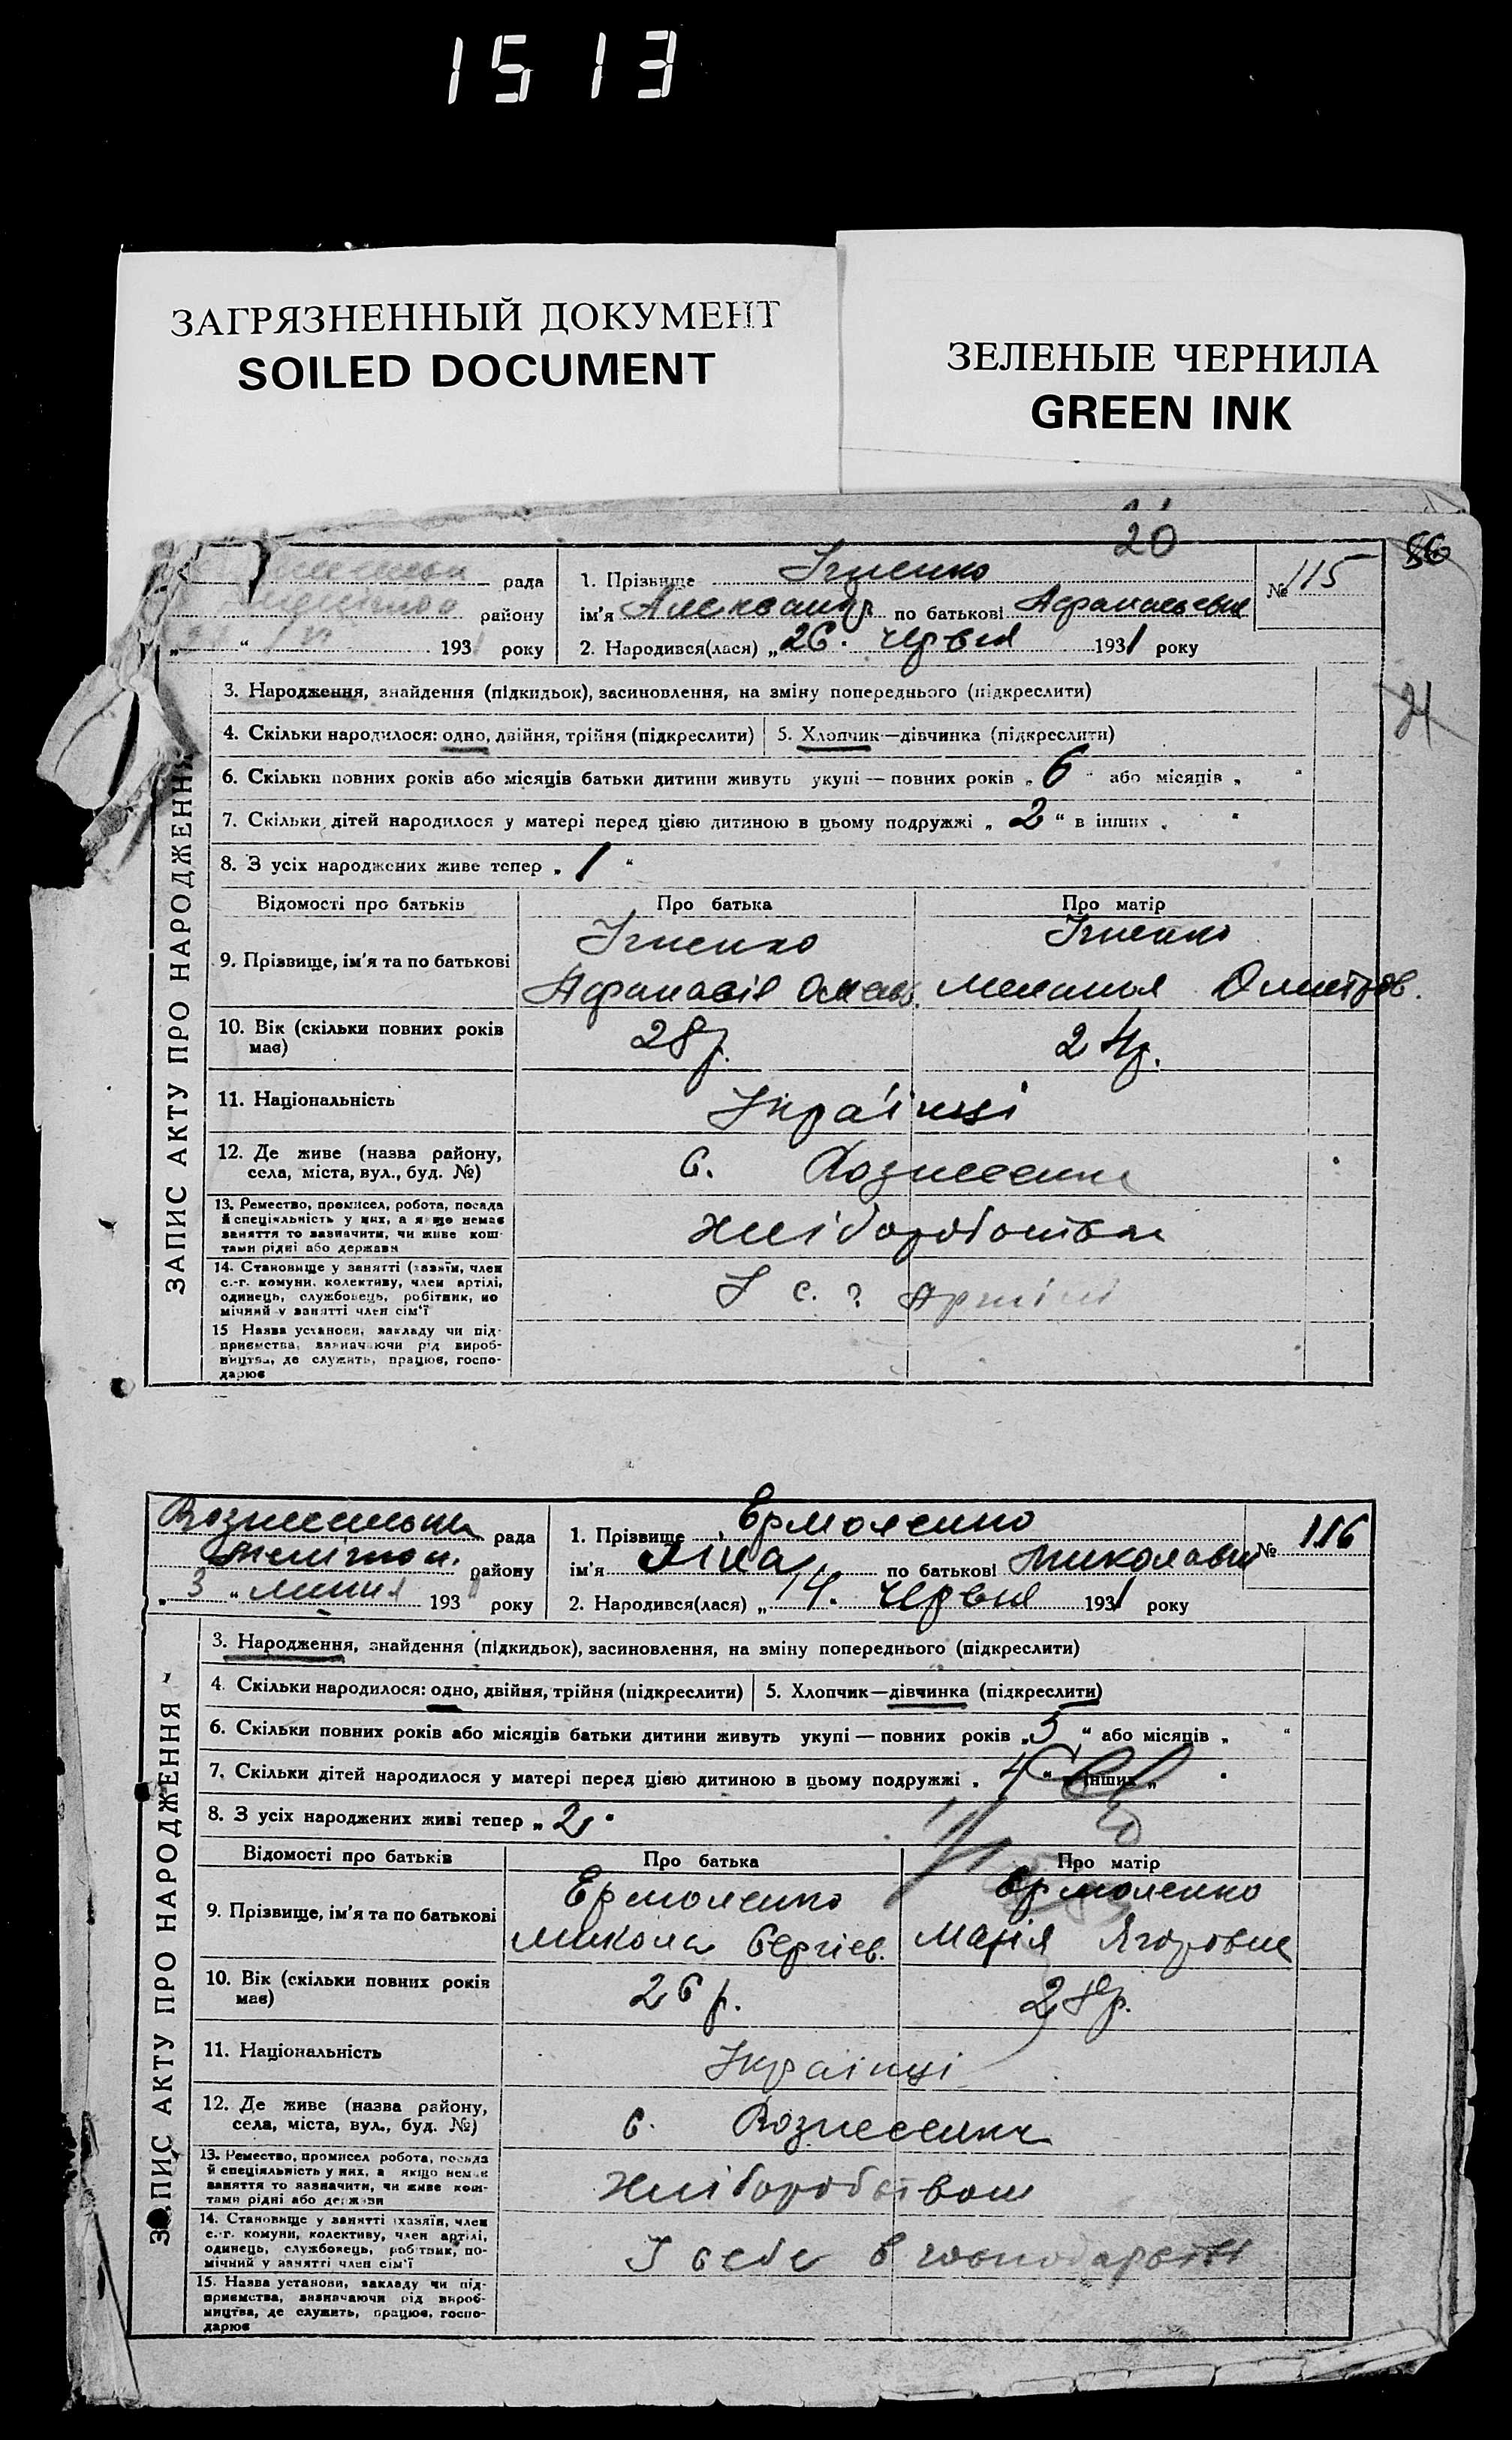 1513
ЗАГРЯЗНЕННЫЙ ДОКУМЕНТ
SOILED DOCUMENT
ЗЕЛЕНЫЕ ЧЕРНИЛА
GREEN INK
20
56
рада
району
193 року
1. Прізвище Ігиенко
№ 115
ім'я Александр по батькові Афанасьевич
2. Народився(лася) „26. червня 1931 року
21
ЗАПИС АКТУ ПРО НАРОДЖЕННЯ
3. Народження, знайдення (підкидьок), засиновлення, на зміну попереднього (підкреслити)
4. Скільки народилося: одно, двійня, трійня (підкреслити) 5. Хлопчик—дівчинка (підкреслити)
6. Скільки повних років або місяців батьки дитини живуть укупі — повних років „6“ або місяців „ “
7. Скільки дітей народилося у матері перед цією дитиною в цьому подружжі „2“ в інших „ “
8. З усіх народжених живе тепер „1“
Відомості про батьків Про батька Про матір
9. Прізвище, ім'я та по батькові
Ігиенко Ігиенко
Афанасій Мелания Дмитров.
10. Вік (скільки повних років має) 28р. 24р.
11. Національність Українці
12. Де живе (назва району, села, міста, вул., буд. №) с. Вознесенка
13. Ремество, промисел, робота, посада й спеціяльність у них, а якщо немає заняття то зазначити, чи живе коштами рідні або держави
14. Становище у занятті (хазяїн, член с.-г. комуни, колективу, член артілі, одинець, службовець, робітник, помічний у занятті член сім'ї У с. г артілі
15 Назва установи, закладу чи підприємства, зазначаючи рід виробництва, де служить, працює, господарює
Вознесенська рада
району
„3“ липня 193 року
1. Прізвище Ермоленко
№ 116
ім'я Ліна по батькові Миколаевн
2. Народився(лася) „14. червня 1931 року
ЗАПИС АКТУ ПРО НАРОДЖЕННЯ
3. Народження, знайдення (підкидьок), засиновлення, на зміну попереднього (підкреслити)
4. Скільки народилося: одно, двійня, трійня (підкреслити) 5. Хлопчик—дівчинка (підкреслити)
6. Скільки повних років або місяців батьки дитини живуть укупі — повних років „5“ або місяців „ “
7. Скільки дітей народилося у матері перед цією дитиною в цьому подружжі „4“ в інших „ “
8. З усіх народжених живі тепер „2“
Відомості про батьків Про батька Про матір
9. Прізвище, ім'я та по батькові
Ермоленко Ермоленко
Микола Сергієв. Марія Ягоровна
10. Вік (скільки повних років має) 26р. 28р.
11. Національність Українці
12. Де живе (назва району, села, міста, вул., буд. №) с. Вознесенка
13. Ремество, промисел робота, посада й спеціяльність у них, а якщо немає заняття то зазначити, чи живе коштами рідні або держави Хліборобством
14. Становище у занятті (хазяїн, член с.-г. комуни, колективу, член артілі, одинець, службовець, робітник, помічний у занятті член сім'ї У себе в господарстві
15. Назва установи, закладу чи підприємства, зазначаючи рід виробництва, де служить, працює, господарює